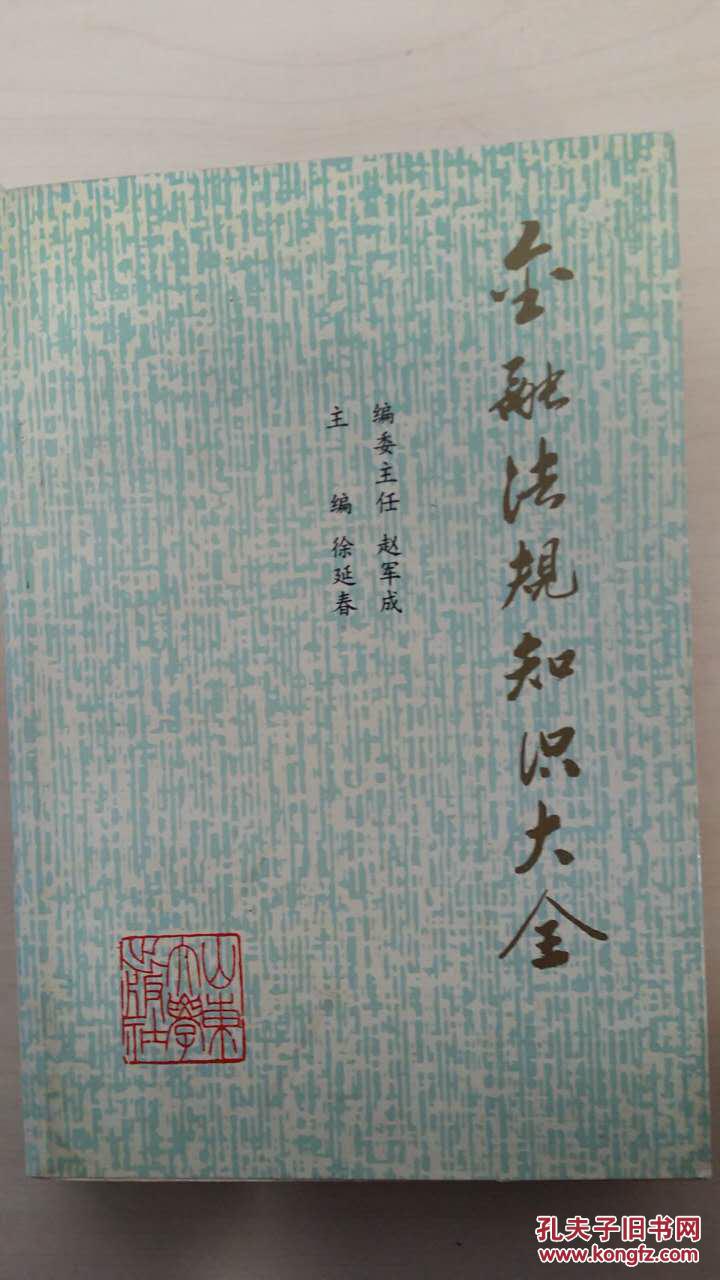 金融法規知识大全
编委主任 赵军成
主 编 徐延春
山東
大學
出版社
孔夫子旧书网
www.kongfz.com